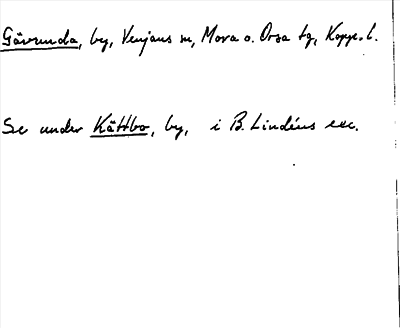 Gävunda, by, Venjans sn, Mora o. Orsa tg, Kopp. l.
Se under Kättbo, by, i B. Lindéns exc.